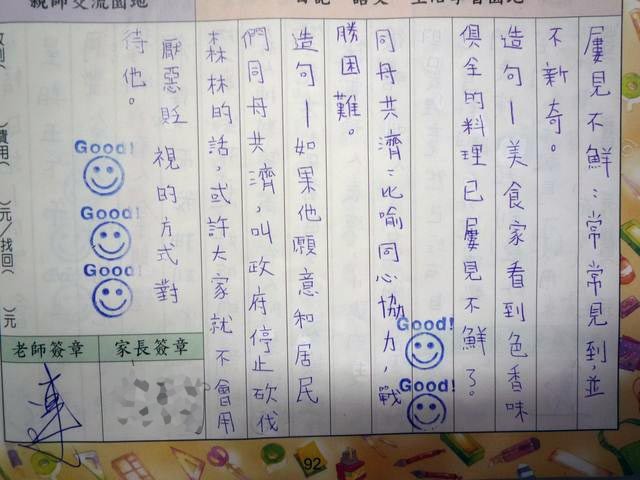 屢見不鮮：常常見到，並
不新奇。
造句－美食家看到色香味
俱全的料理已屢見不鮮了。
同舟共濟：比喻同心協力，戰
勝困難。
造句－如果他願意和居民
們同舟共濟，叫政府停止砍伐
森林的話，或許大家就不會用
厭惡貶視的方式對
待他。
Good!
Good!
Good!
Good!
Good!
家長簽章
老師簽章
親師交流園地
費用
元/找回
元
92